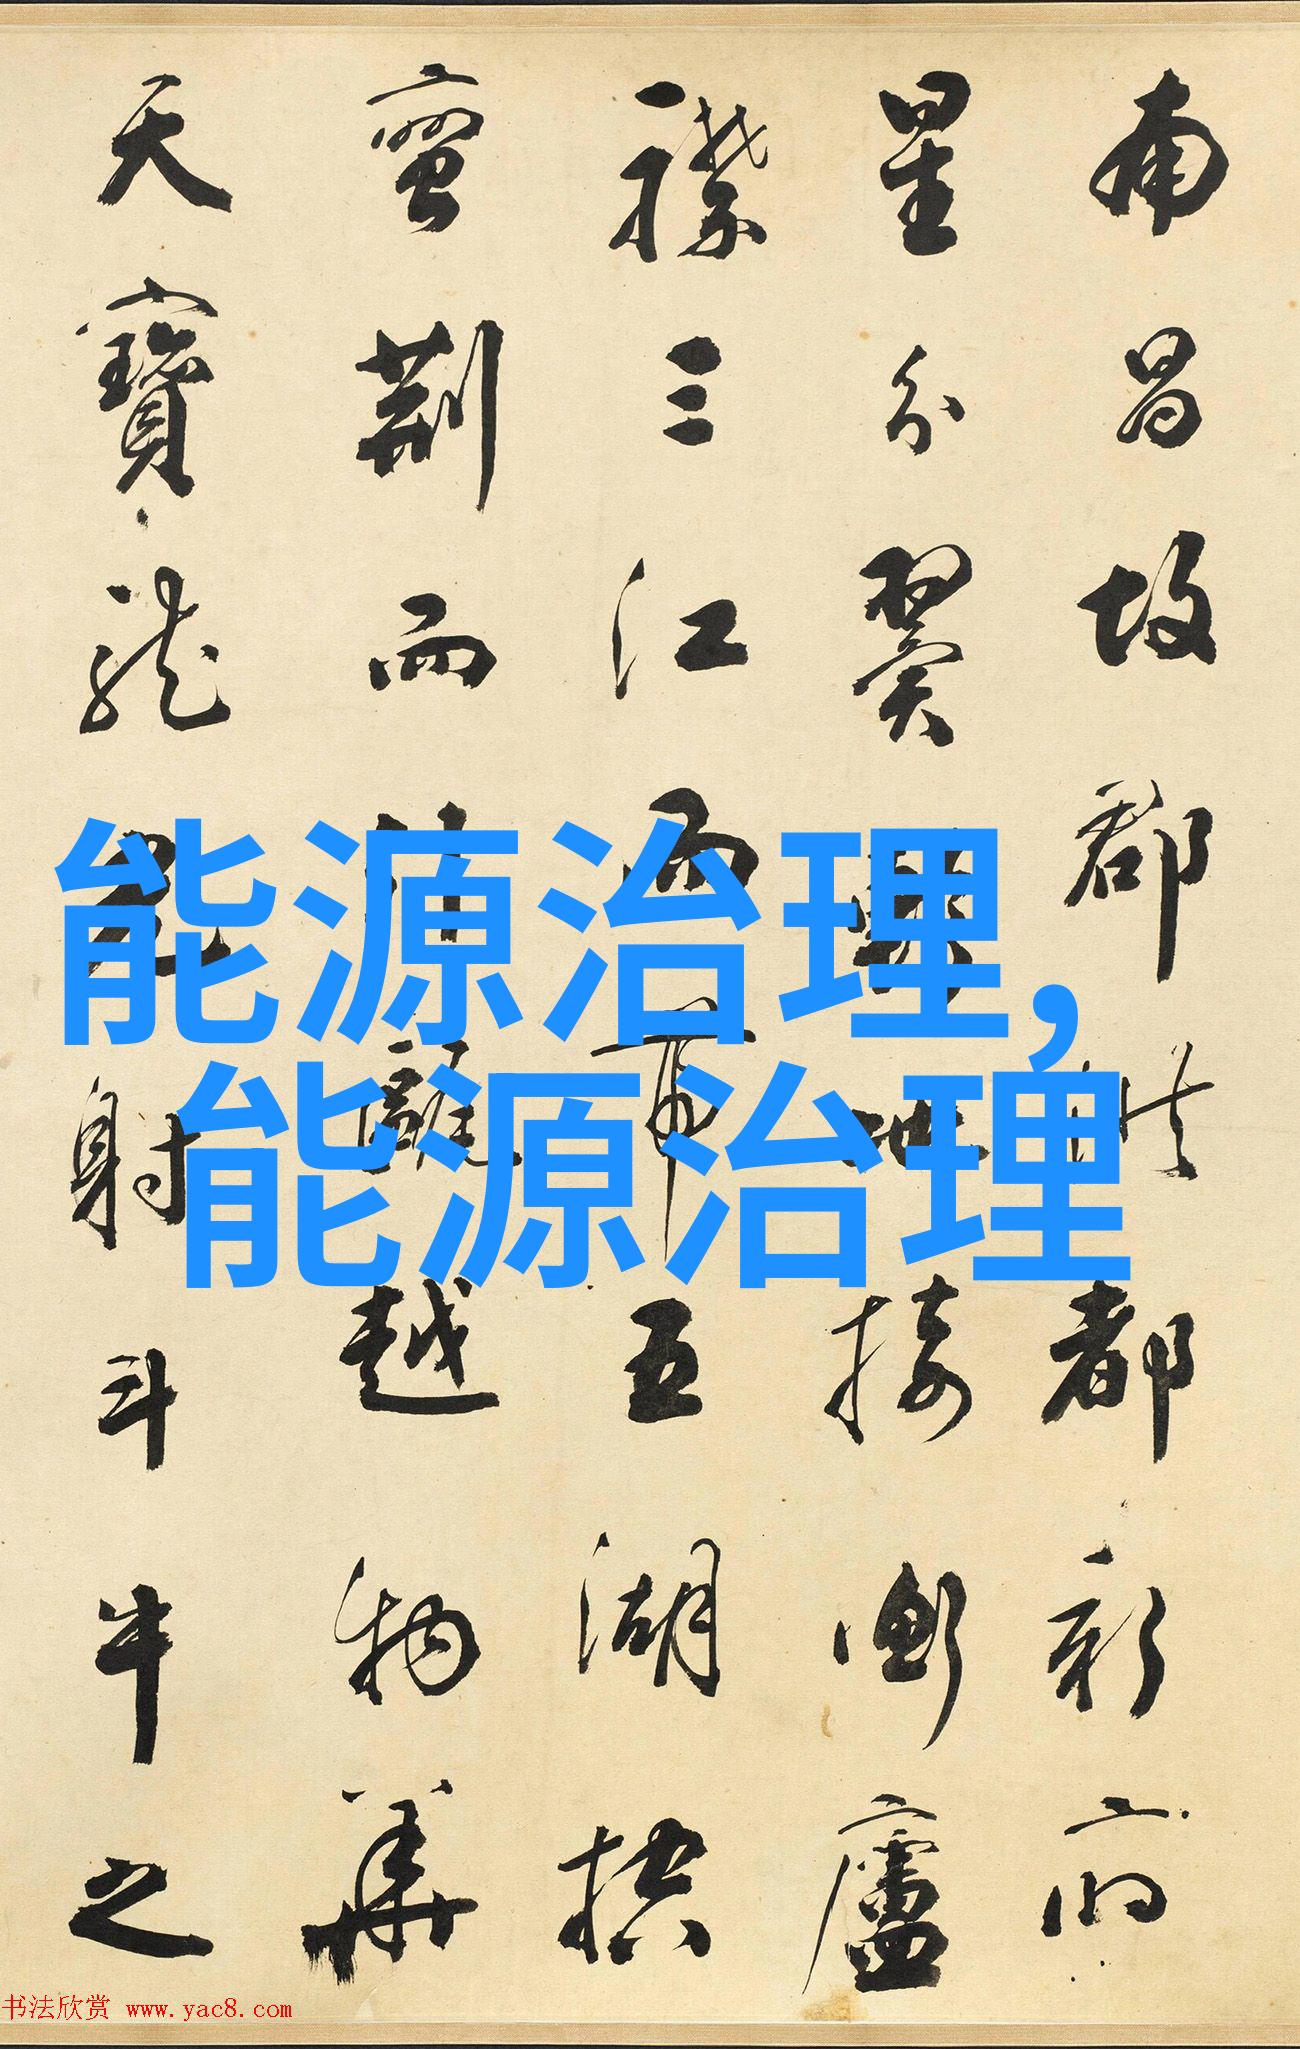 南昌故郡洪都新府
星分翼軫地接衡廬
襟三江而帶五湖控
蠻荊而引甌越物華
天寶龍光射斗牛之
能源治理,
能源治理
书法欣赏 www.yac8.com